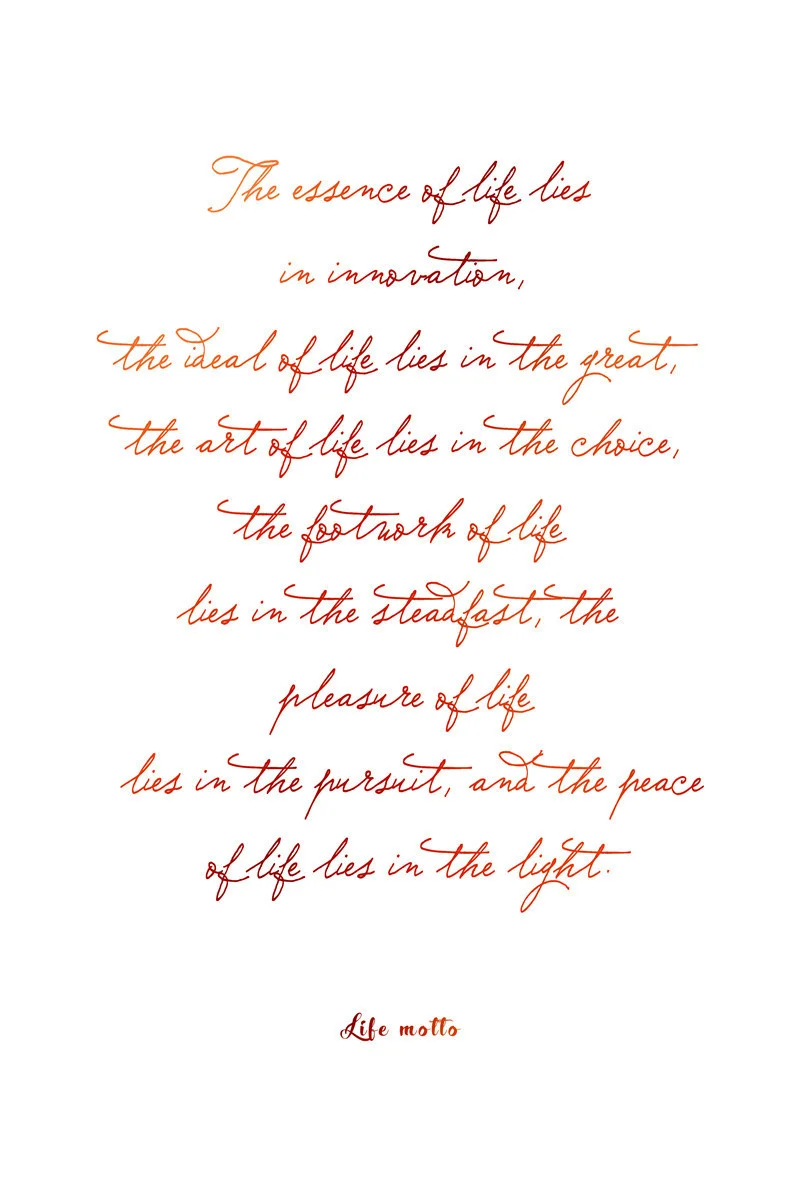 The essence of life lies
in innovation,
the ideal of life lies in the great,
the art of life lies in the choice,
the footwork of life
lies in the steadfast, the
pleasure of life
lies in the pursuit, and the peace
of life lies in the light.
Life motto